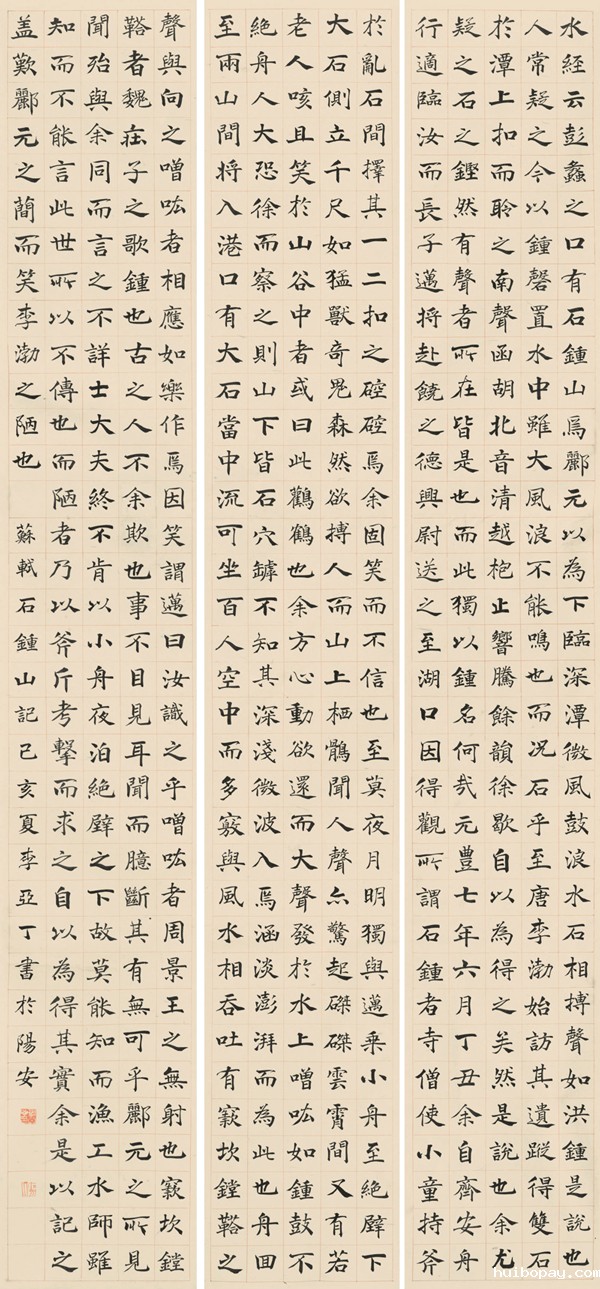 水經云彭蠡之口有石鍾山焉酈元以為下臨深潭微風鼓浪水石相搏聲如洪鍾是說也
人常疑之今以鍾磬置水中雖大風浪不能鳴也而況石乎至唐李渤始訪其遺蹤得雙石
於潭上扣而聆之南聲函胡北音清越枹止響騰餘韻徐歇自以為得之矣然是說也余尤
疑之石之鏗然有聲者所在皆是也而此獨以鍾名何哉元豐七年六月丁丑余自齊安舟
行適臨汝而長子邁將赴饒之德興尉送之至湖口因得觀所謂石鍾者寺僧使小童持斧
於亂石間擇其一二扣之硿硿焉余固笑而不信也至莫夜月明獨與邁乘小舟至絕壁下
大石側立千尺如猛獸奇鬼森然欲搏人而山上栖鶻聞人聲亦驚起磔磔雲霄間又有若
老人咳且笑於山谷中者或曰此鸛鶴也余方心動欲還而大聲發於水上噌吰如鍾鼓不
絕舟人大恐徐而察之則山下皆石穴罅不知其深淺微波入焉涵淡澎湃而為此也舟回
至兩山間將入港口有大石當中流可坐百人空中而多竅與風水相吞吐有窾坎鏜鞳之
聲與向之噌吰者相應如樂作焉因笑謂邁曰汝識之乎噌吰者周景王之無射也窾坎鏜
鞳者魏莊子之歌鍾也古之人不余欺也事不目見耳聞而臆斷其有無可乎酈元之所見
聞殆與余同而言之不詳士大夫終不肯以小舟夜泊絕壁之下故莫能知而漁工水師雖
知而不能言此世所以不傳也而陋者乃以斧斤考擊而求之自以為得其實余是以記之
盖歎酈元之簡而笑李渤之陋也 蘇軾石鍾山記己亥夏李亞丁書於陽安
huibopay.com